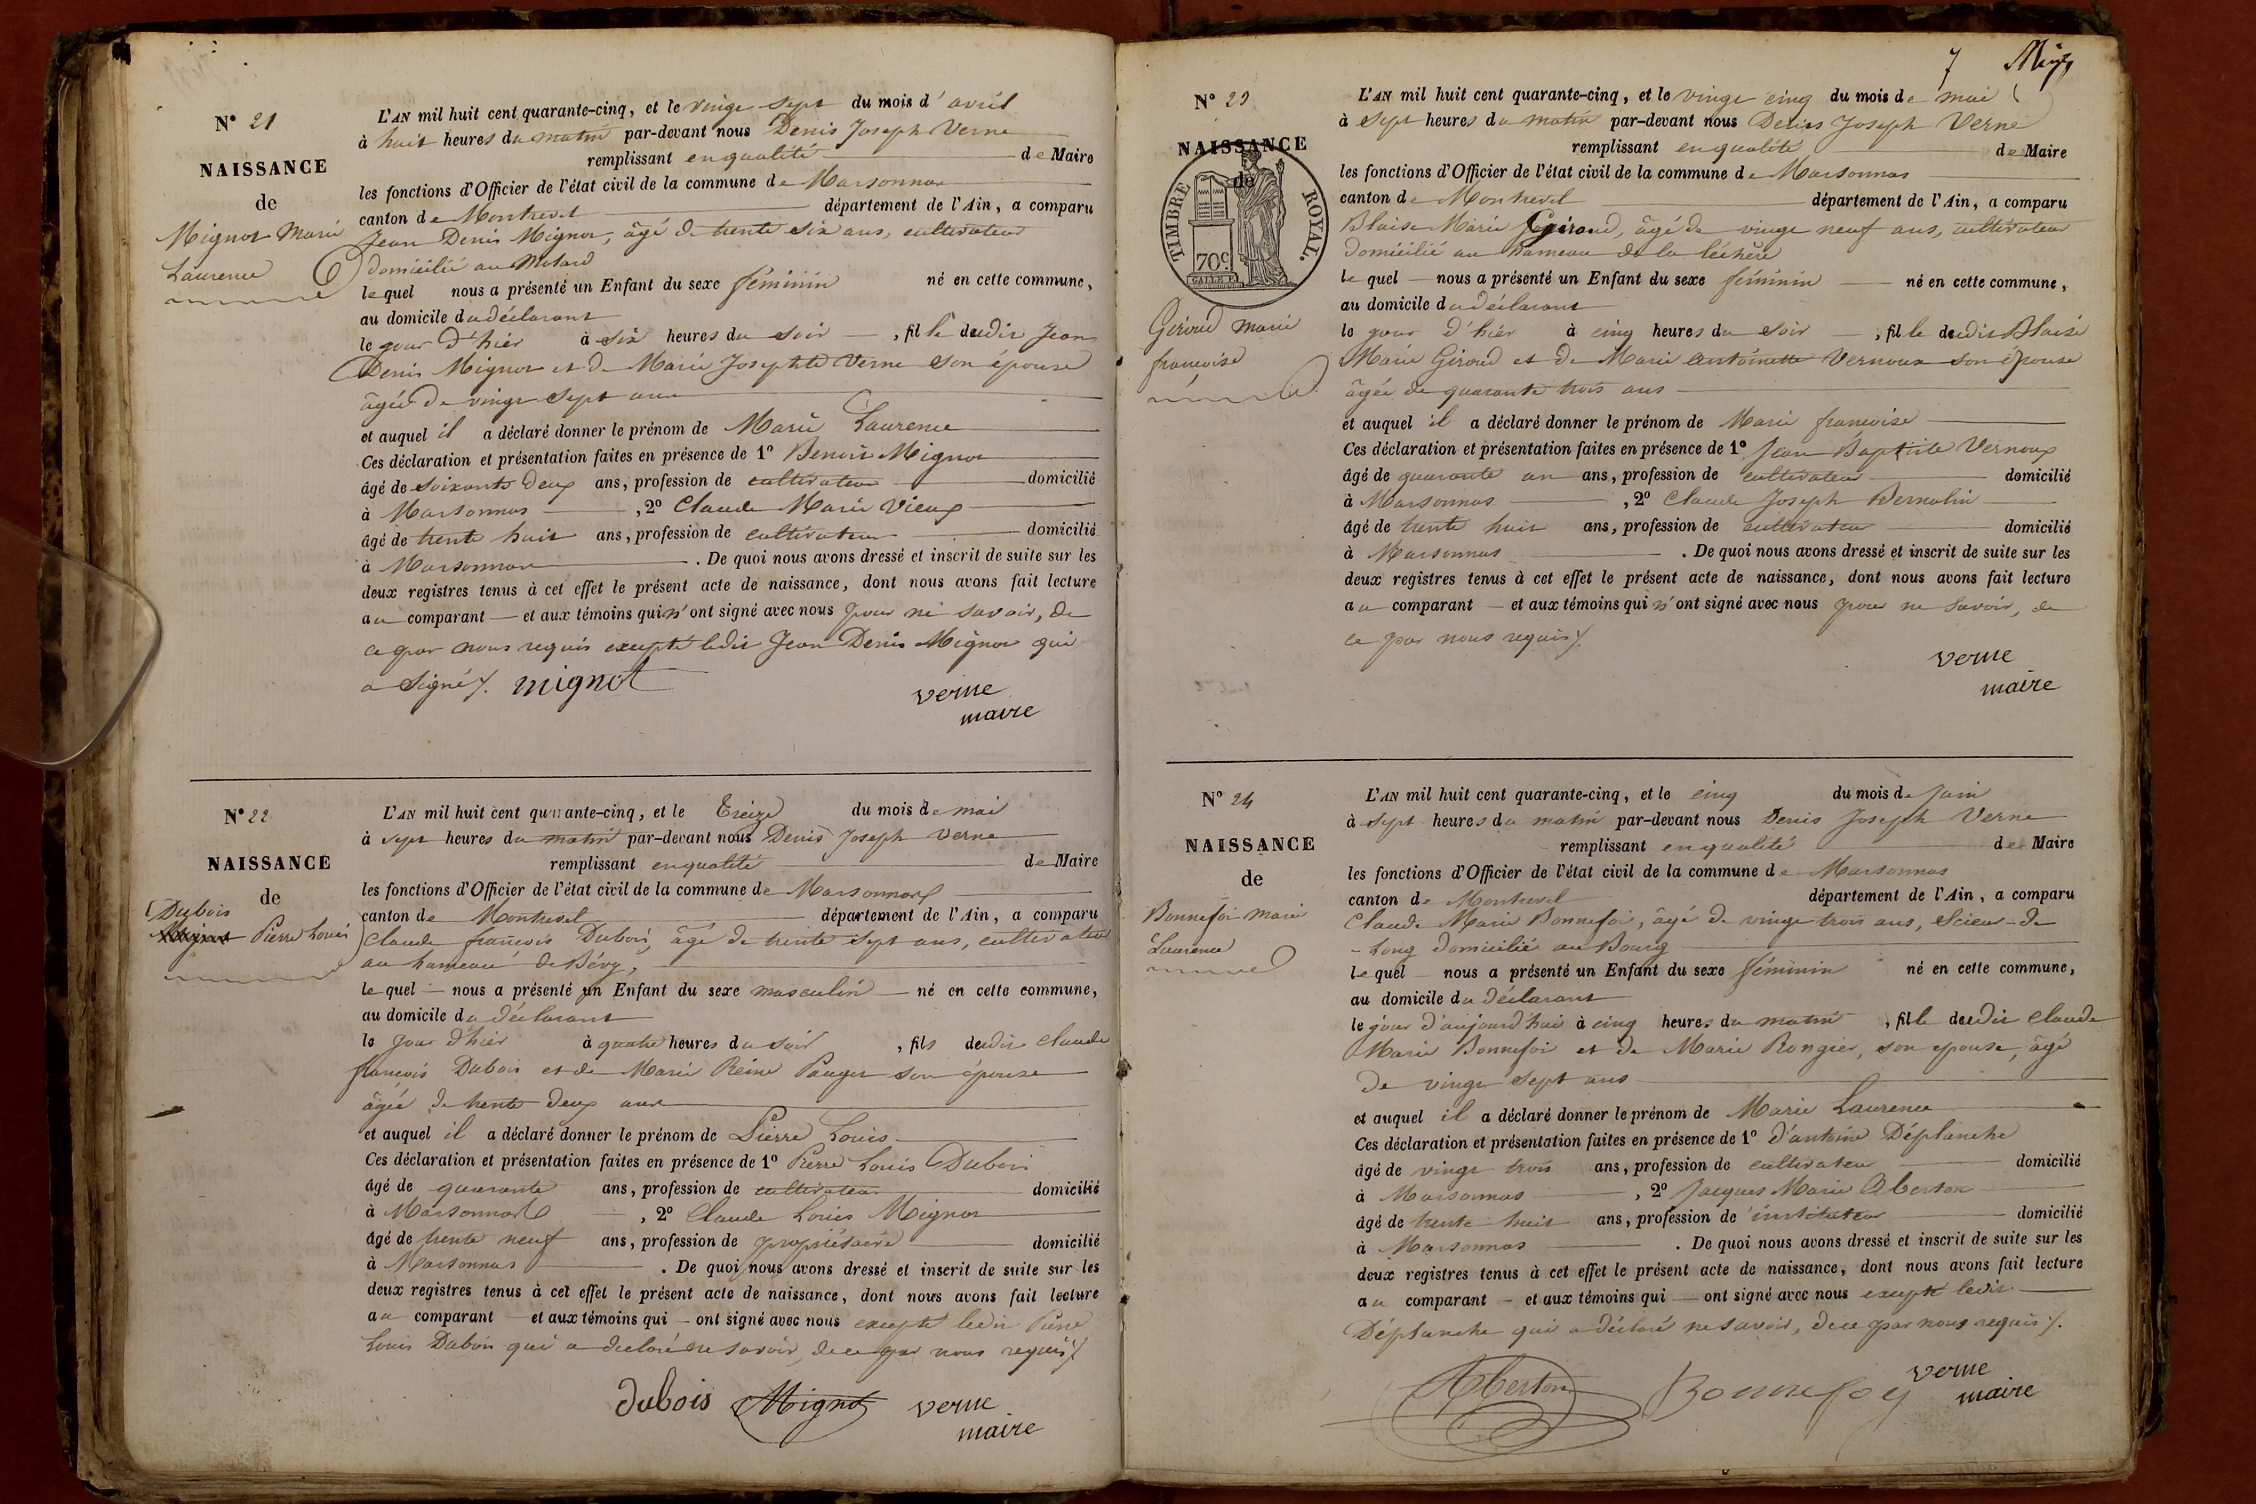 N° 21
NAISSANCE
de
Mignot Marie
Laurence
L'AN mil huit cent quarante-cinq, et le vingt sept du mois d'avril
à huit heures du matin par-devant nous Denis Joseph Verne
remplissant en qualité de Maire
les fonctions d'Officier de l'état civil de la commune de Marsonnas
canton de Montrevel département de l'Ain, a comparu
Jean Denis Mignot, âgé de trente six ans, cultivateur
domicilié au Molard
lequel nous a présenté un Enfant du sexe féminin né en cette commune,
au domicile du déclarant
le jour d'hier à six heures du soir, fille dudit Jean
Denis Mignot et de Marie Josephte Verne son épouse
âgée de vingt sept ans
et auquel il a déclaré donner le prénom de Marie Laurence
Ces déclaration et présentation faites en présence de 1° Benoit Mignot
âgé de soixante deux ans, profession de cultivateur domicilié
à Marsonnas, 2° Claude Marie Vieux
âgé de trente huit ans, profession de cultivateur domicilié
à Marsonnas. De quoi nous avons dressé et inscrit de suite sur les
deux registres tenus à cet effet le présent acte de naissance, dont nous avons fait lecture
au comparant et aux témoins qui n'ont signé avec nous pour ne savoir, de
ce par nous requis excepté ledit Jean Denis Mignot qui
a signé /. mignot
verne
maire
N° 22
NAISSANCE
de
Dubois
Mignot Pierre Louis
L'AN mil huit cent quarante-cinq, et le treize du mois de mai
à sept heures du matin par-devant nous Denis Joseph Verne
remplissant en qualité de Maire
les fonctions d'Officier de l'état civil de la commune de Marsonnas
canton de Montrevel département de l'Ain, a comparu
Claude françois Dubois, âgé de trente sept ans, cultivateur
au hameau de Bévy,
lequel nous a présenté un Enfant du sexe masculin né en cette commune,
au domicile du déclarant
le jour d'hier à quatre heures du soir, fils dudit Claude
françois Dubois et de Marie Reine Pauget son épouse
âgée de trente deux ans
et auquel il a déclaré donner le prénom de Pierre Louis
Ces déclaration et présentation faites en présence de 1° Pierre Louis Dubois
âgé de quarante ans, profession de cultivateur domicilié
à Marsonnas, 2° Claude Louis Mignot
âgé de trente neuf ans, profession de propriétaire domicilié
à Marsonnas. De quoi nous avons dressé et inscrit de suite sur les
deux registres tenus à cet effet le présent acte de naissance, dont nous avons fait lecture
au comparant et aux témoins qui ont signé avec nous excepté ledit Pierre
Louis Dubois qui a déclaré ne savoir, de ce par nous requis /.
dubois Mignot verne
maire
7
N° 23
NAISSANCE
de
TIMBRE ROYAL.
70c.
Giroud marie
françoise
L'AN mil huit cent quarante-cinq, et le vingt cinq du mois de mai
à sept heures du matin par-devant nous Denis Joseph Verne
remplissant en qualité de Maire
les fonctions d'Officier de l'état civil de la commune de Marsonnas
canton de Montrevel département de l'Ain, a comparu
Blaise Marie Giroud, âgé de vingt neuf ans, cultivateur
domicilié au hameau de la léchère
lequel nous a présenté un Enfant du sexe féminin né en cette commune,
au domicile du déclarant
le jour d'hier à cinq heures du soir, fille dudit Blaise
Marie Giroud et de Marie antoinette Vernoux son épouse
âgée de quarante trois ans
et auquel il a déclaré donner le prénom de Marie françoise
Ces déclaration et présentation faites en présence de 1° Jean Baptiste Vernoux
âgé de quarante un ans, profession de cultivateur domicilié
à Marsonnas, 2° Claude Joseph Bernolin
âgé de trente huit ans, profession de cultivateur domicilié
à Marsonnas. De quoi nous avons dressé et inscrit de suite sur les
deux registres tenus à cet effet le présent acte de naissance, dont nous avons fait lecture
au comparant et aux témoins qui n'ont signé avec nous pour ne savoir, de
ce par nous requis /.
verne
maire
N° 24
NAISSANCE
de
Bonnefoi marie
Laurence
L'AN mil huit cent quarante-cinq, et le cinq du mois de juin
à sept heures du matin par-devant nous Denis Joseph Verne
remplissant en qualité de Maire
les fonctions d'Officier de l'état civil de la commune de Marsonnas
canton de Montrevel département de l'Ain, a comparu
Claude Marie Bonnefoi, âgé de vingt trois ans, scieur-de
-long domicilié au Bourg
lequel nous a présenté un Enfant du sexe féminin né en cette commune,
au domicile du déclarant
le jour d'aujourd'hui à cinq heures du matin, fille dudit Claude
Marie Bonnefoi et de Marie Rongier, son épouse, âgé
de vingt sept ans
et auquel il a déclaré donner le prénom de Marie Laurence
Ces déclaration et présentation faites en présence de 1° d'antoine Déplanche
âgé de vingt trois ans, profession de cultivateur domicilié
à Marsonnas, 2° Jacques Marie Aberton
âgé de trente huit ans, profession de instituteur domicilié
à Marsonnas. De quoi nous avons dressé et inscrit de suite sur les
deux registres tenus à cet effet le présent acte de naissance, dont nous avons fait lecture
au comparant et aux témoins qui ont signé avec nous excepté ledit
Déplanche qui a déclaré ne savoir, de ce par nous requis /.
Aberton Bonnefoy verne
maire